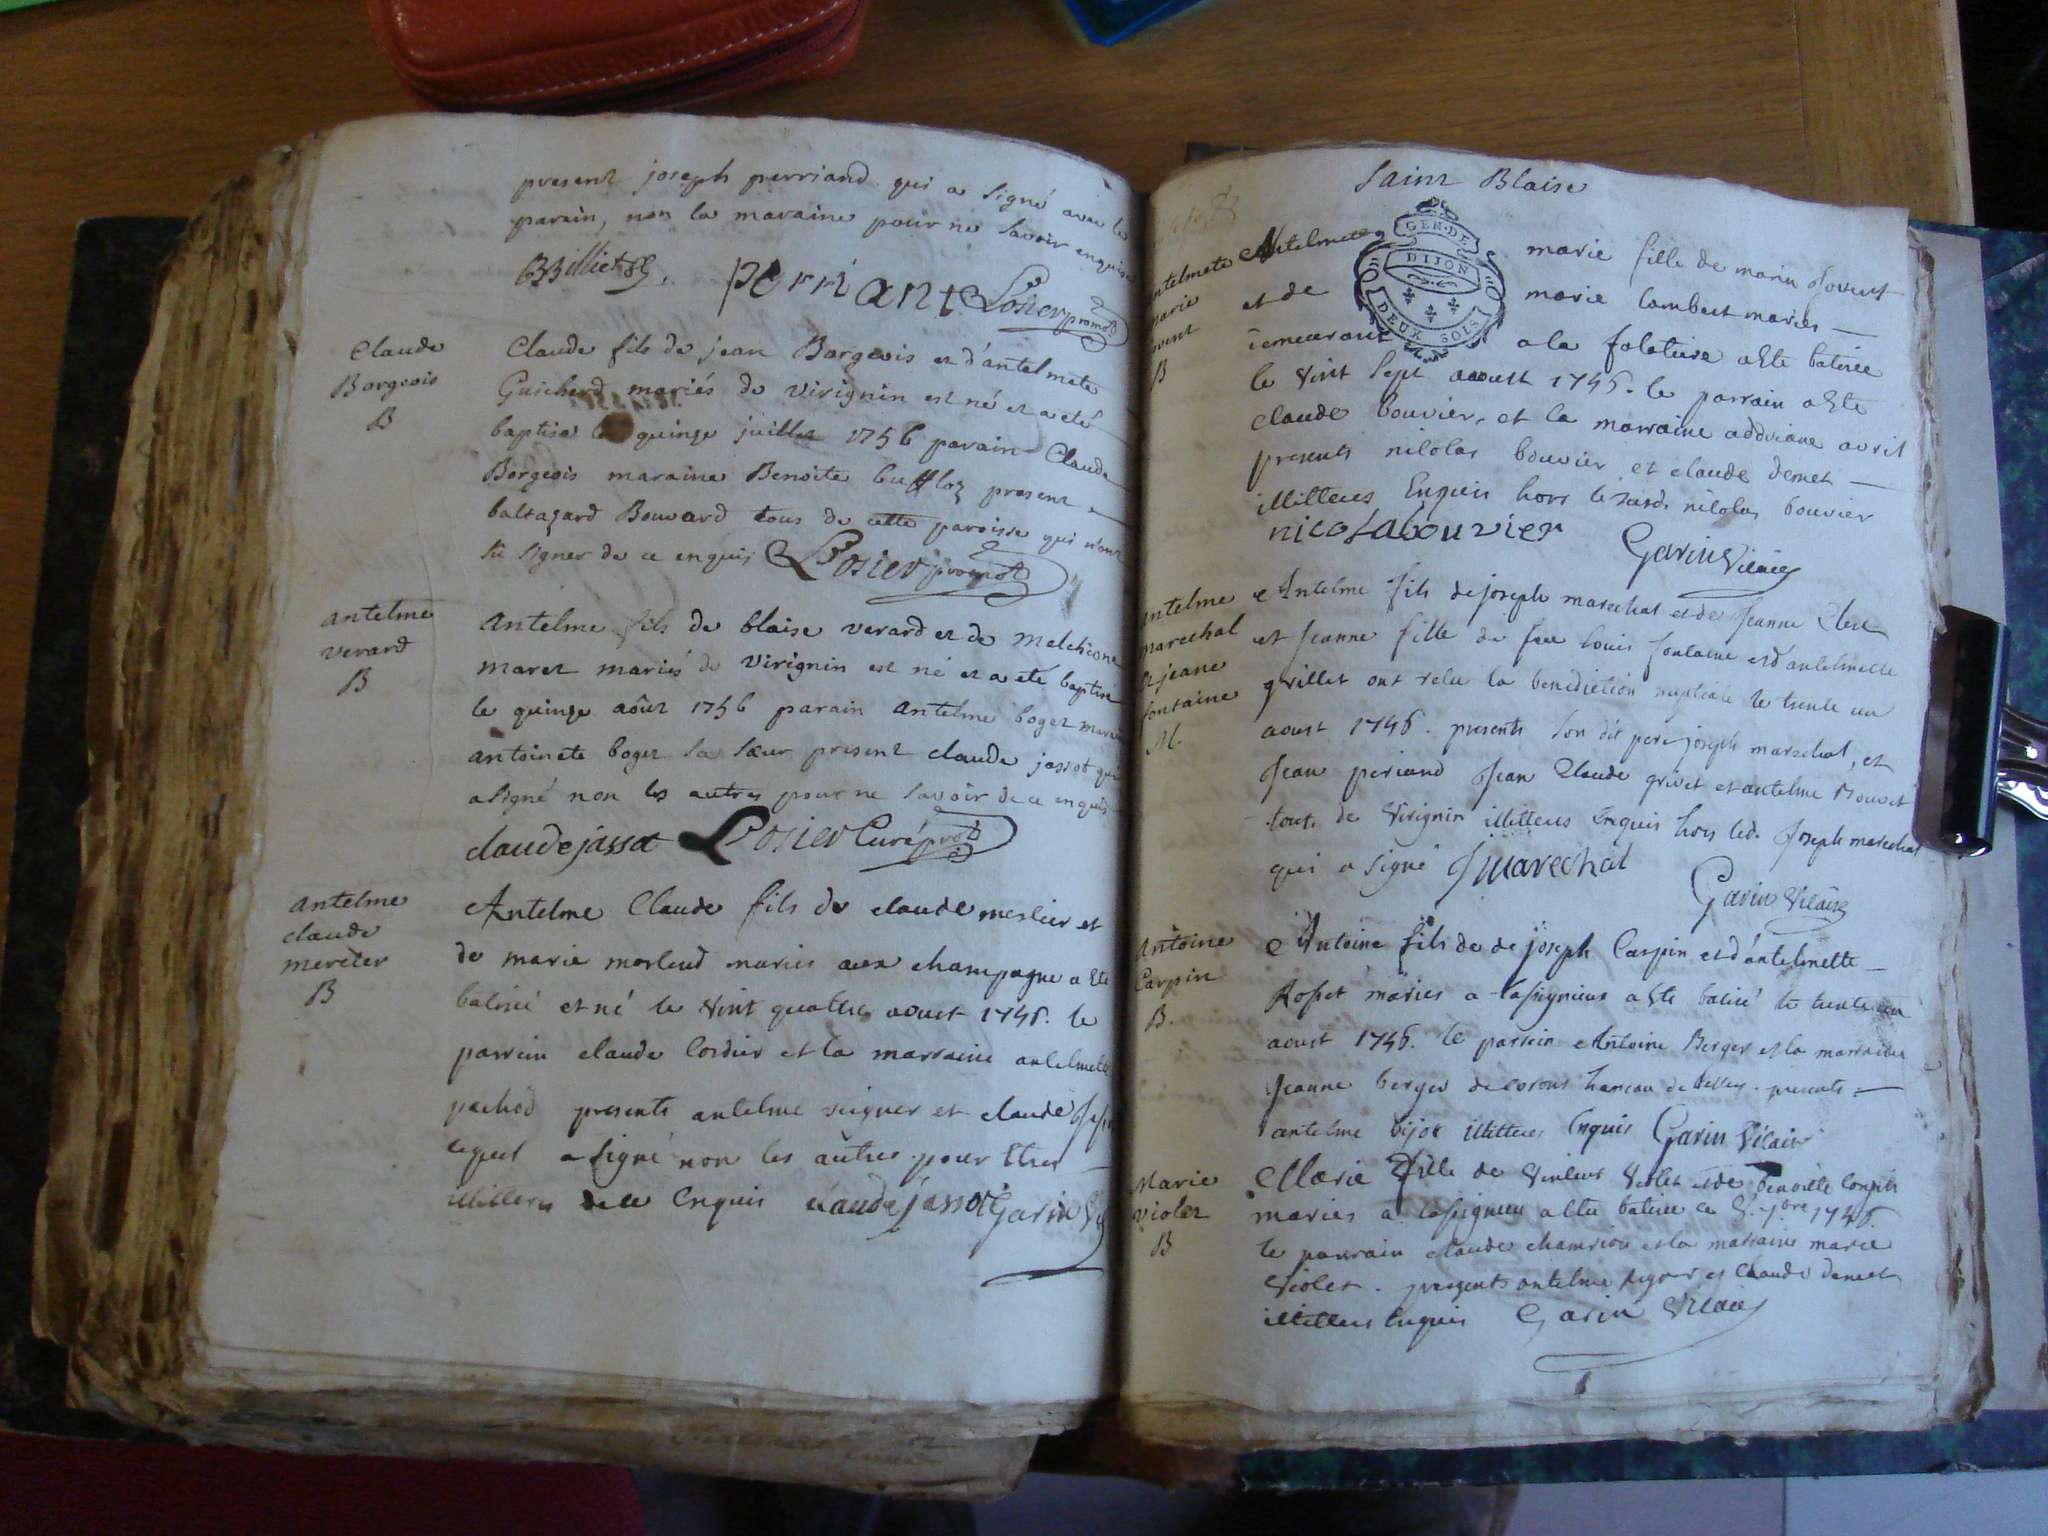 present joseph perriand qui a signé avec le
parain, non la maraine pour ne savoir enquise
BBilliet
perriant Losier promot
Claude
Borgeois
B
Claude fils de jean Borgeois et d'antelmete
Guicherd mariés de virignin est né et a eté
baptisé le quinze juillet 1756 parain Claude
Borgeois maraine Benoite present
baltazard Bouvard tous de cette paroisse qui n'ont
sû signer de ce enquis Losier promot
antelme
verard
B
Antelme fils de blaise verard et de melchione
maret mariés de virignin est né et a eté baptisé
le quinze aôut 1756 parain antelme boget
antoinete boget sa sœur present claude jassot qui
a signé non les autres pour ne savoir de ce enquis
claude jassot Losier Curé prot
antelme
claude
mercier
B
Antelme Claude fils de claude mercier et
de marie marlend mariés aux champagne a ete
batisé et né le vint quattre aoust 1756. le
parrein claude Cordier et la marraine antelmette
pachod presents antelme seigner et claude
lequel a signé non les autres pour etres
illiteres de ce Enquis claude jassot Garin
Saint Blaise
GEN. DE
DIJON
DEUX SOLS
antelmete
marie
jovent
B
Antelmete marie fille de marin jovent
et de marie lambert mariés
demeurant a la folatiere a ete batisée
le vint sept aoust 1756. le parrain a ete
claude bouvier, et la marraine addriane avril
presents nicolas bouvier et claude demet
illitteres Enquis hors le susd. nicolas bouvier
nicolabouvier
Garin Vicaire
antelme
marechal
et jeane
fontaine
M.
Antelme fils de joseph marechal et de jeanne Clerc
et jeanne fille de feu louis fontaine et d'antelmette
grillet ont recu la benediction nuptiale le trente un
aoust 1756. presents son dit pere joseph marechal, et
jean periand jean Claude grivet et antelme Bouvet
tous de Virignin illitteres enquis hors led. joseph marechal
qui a signé J marechal
Garin Vicaire
Antoine
Carpin
B.
Antoine fils de de joseph Carpin et d'antelmette
Rosset mariés a lassignieu a ete batisé le trente un
aoust 1756. le parrein Antoine Berger et la marraine
Jeanne berger de corons hameau de belley. presents
antelme bijot illitteres Enquis Garin Vicaire
Marie
violet
B
Marie fille de vincent violet et de benoite
mariés a lassignieu a ete batisée ce 7bre 1756.
le parrain claude chamrion et la marraine marie
violet. presents antelme et claude demet
illitteres Enquis Garin Vicaire